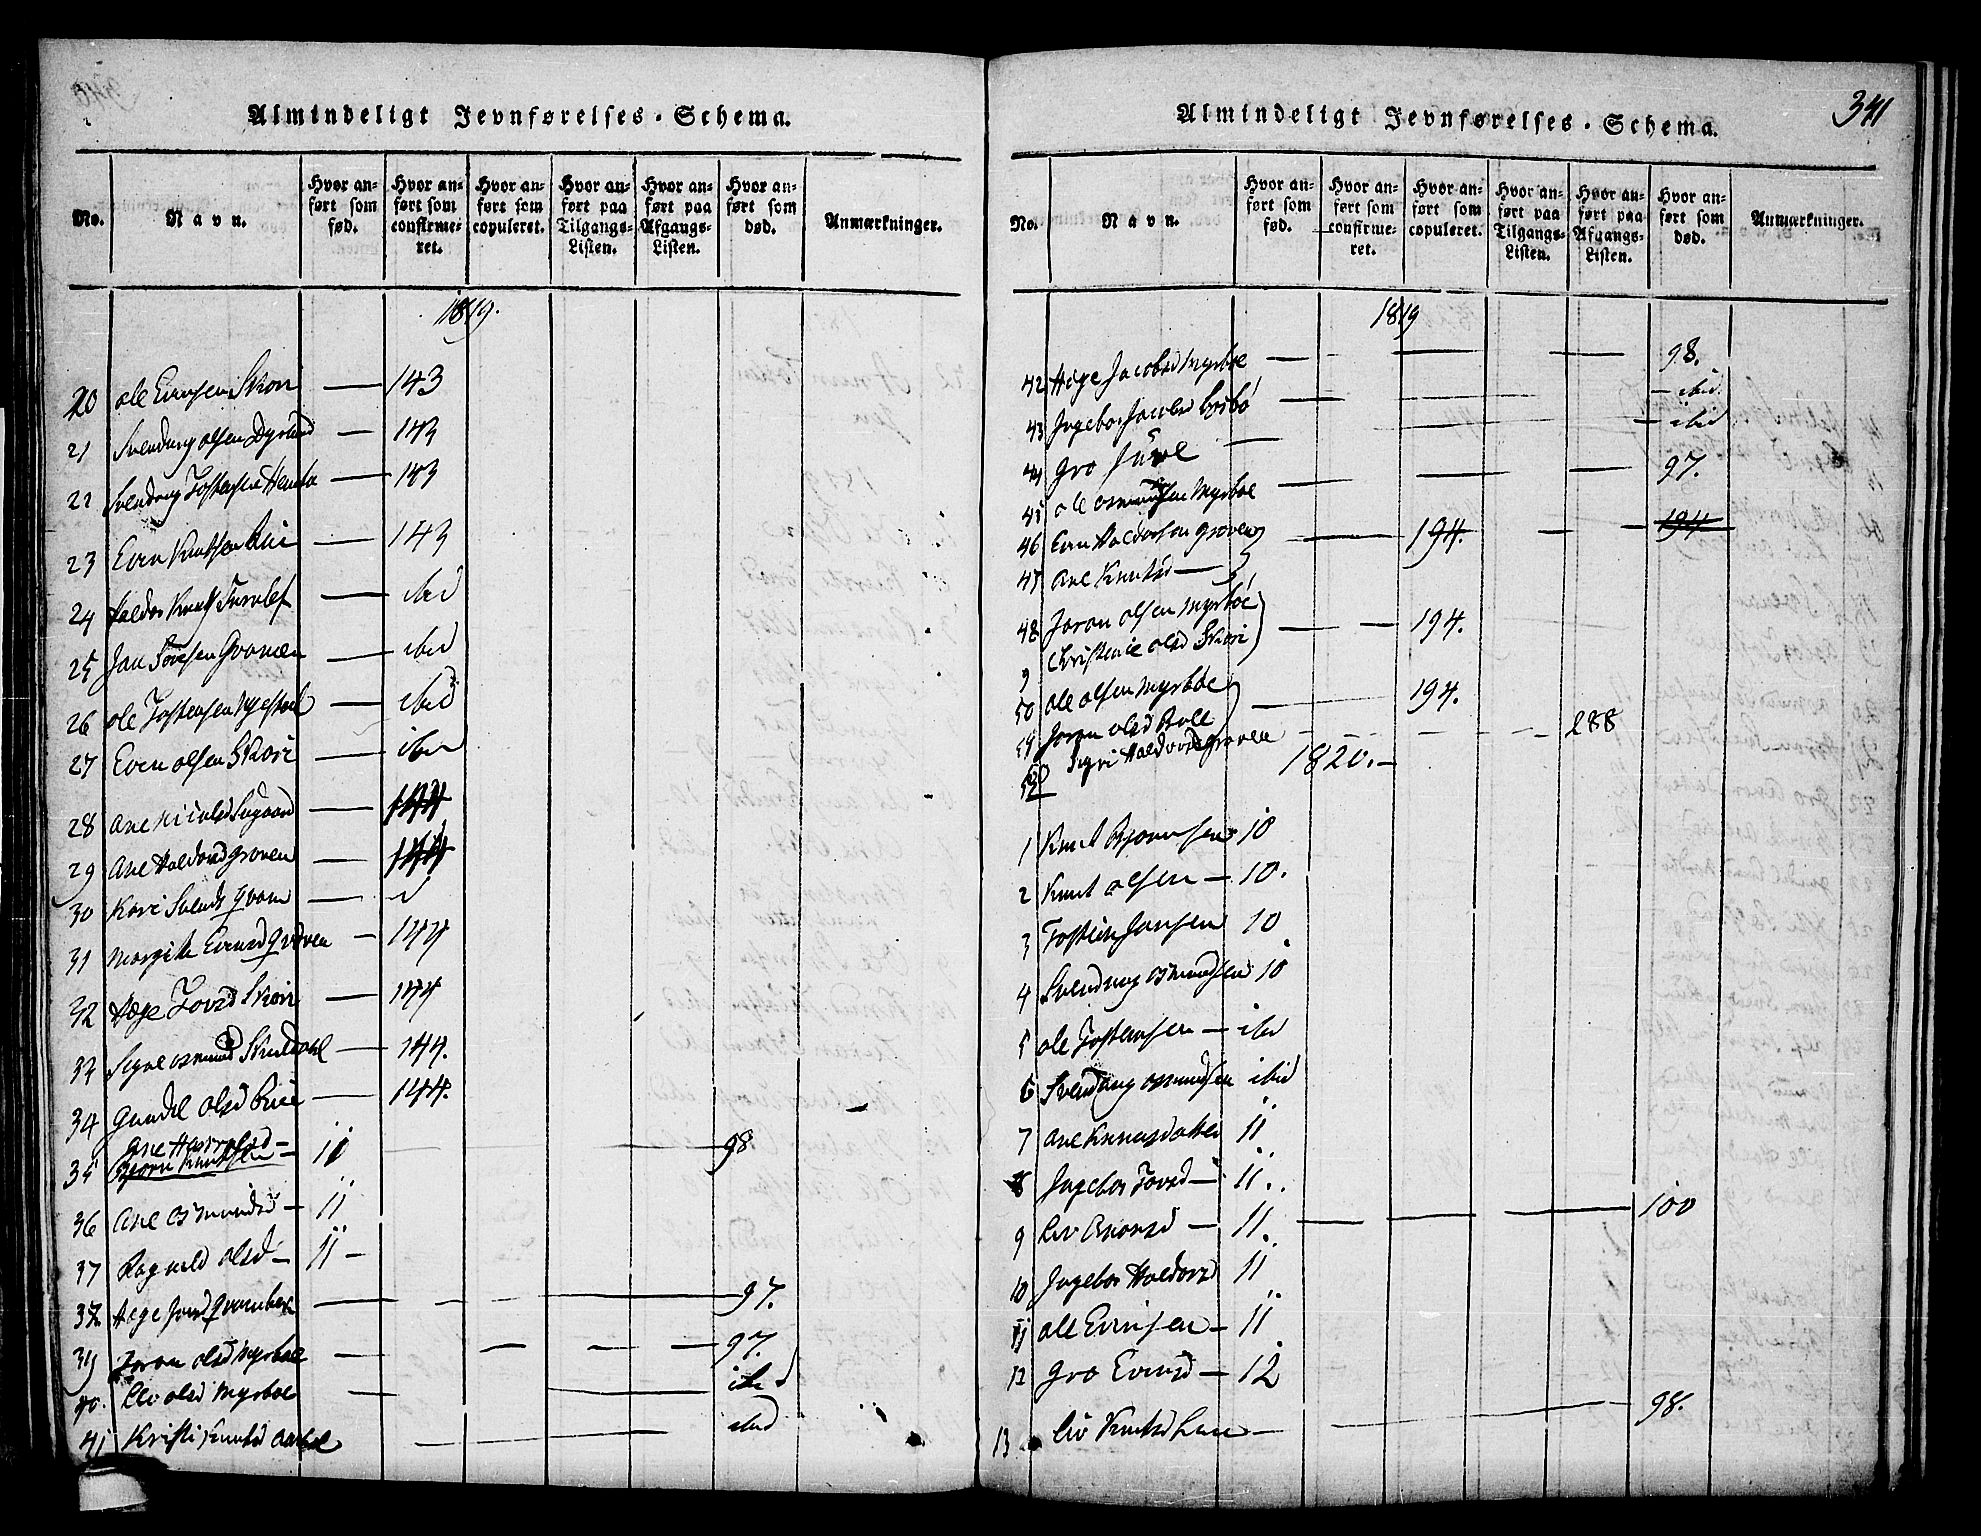 Almindeligt Jevnførelses-Schema.
No. Navn. Hvor anført som fød. Hvor anført som confirmeret. Hvor anført som copuleret. Hvor anført paa Tilgangs-Listen. Hvor anført paa Afgangs-Listen. Hvor anført som død. Anmærkninger.
1819.
20 Ole Evensen Skori — 143
21 Svendung Olsen Dyrland — 143
22 Svendung Tostensen — 143
23 Even Knutsen Rui — 143
24 Haldor Knuts — ibid
25 Jan Toresen — ibid
26 Ole Tostensen — ibid
27 Even Olsen Skori — ibid
28 Ane — 144
29 Ane Haldorsd Groven — 144
30 Kari Svends — 
31 Margith Evensd Groven — 144
32 Hæge Tovsd Skori — 144
33 Signe Osmundsd — 144.
34 Gundel Olsd Rui — 144.
Ane —
35 Bjørn Knutsen — 11 — 98.
36 Ane Osmundsd — 11
37 Ragnild Olsd — 11 —
38 Hæge — 97.
39 Joron Olsd Myrboe — 97.
40. Liv Olsd Myrboe — ibid
41 Kristi Knutsd — ibid
Almindeligt Jevnførelses-Schema.
341
No. Navn. Hvor anført som fød. Hvor anført som confirmeret. Hvor anført som copuleret. Hvor anført paa Tilgangs-Listen. Hvor anført paa Afgangs-Listen. Hvor anført som død. Anmærkninger.
1819
42 Hæge Jacobsd Myrboe — 98.
43 Ingebor Jacobsd — ibid.
44 Gro — ibid
45 Ole Osmundsen Myrboe — 97.
46 Even Haldorsen Groven — 194. — 194
47 Ane Knutsd —
48 Joron Olsen Myrboe — 194.
9 Christence Olsd Skori
50 Ole Olsen Myrboe — 194.
51 Joron Olsd
52 Sigri Haldorsd Groven — 288
1820. —
1 Knut Bjørnsen 10
2 Knut Olsen — 10.
3 Tosten Jansen 10
4 Svendung Osmundsen 10
5 Ole Tostensen — ibid
6 Svendung Osmundsen ibid
7 Ane Knutsdatter 11
8 Ingebor Tovsd — 11.
9 Liv — 11. — 100
10 Ingebor Haldorsd 11
11 Ole Evensen — 11
12 Gro Evensd — 12
13 Liv Knutsd — 98.